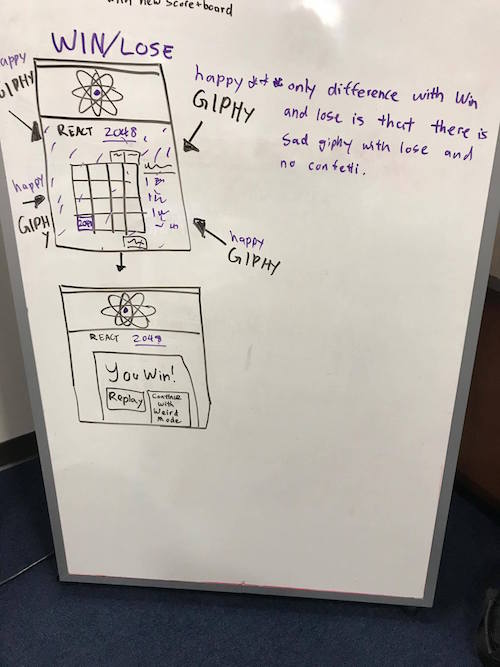 with new scoreboard
WIN/LOSE
happy
GIPHY
REACT 2048
happy
GIPHY
2048
happy
GIPHY
happy
GIPHY
*** only difference with Win
and lose is that there is
sad giphy with lose and
no confetti.
REACT 2048
You Win!
Replay
Continue
with
Weird
Mode